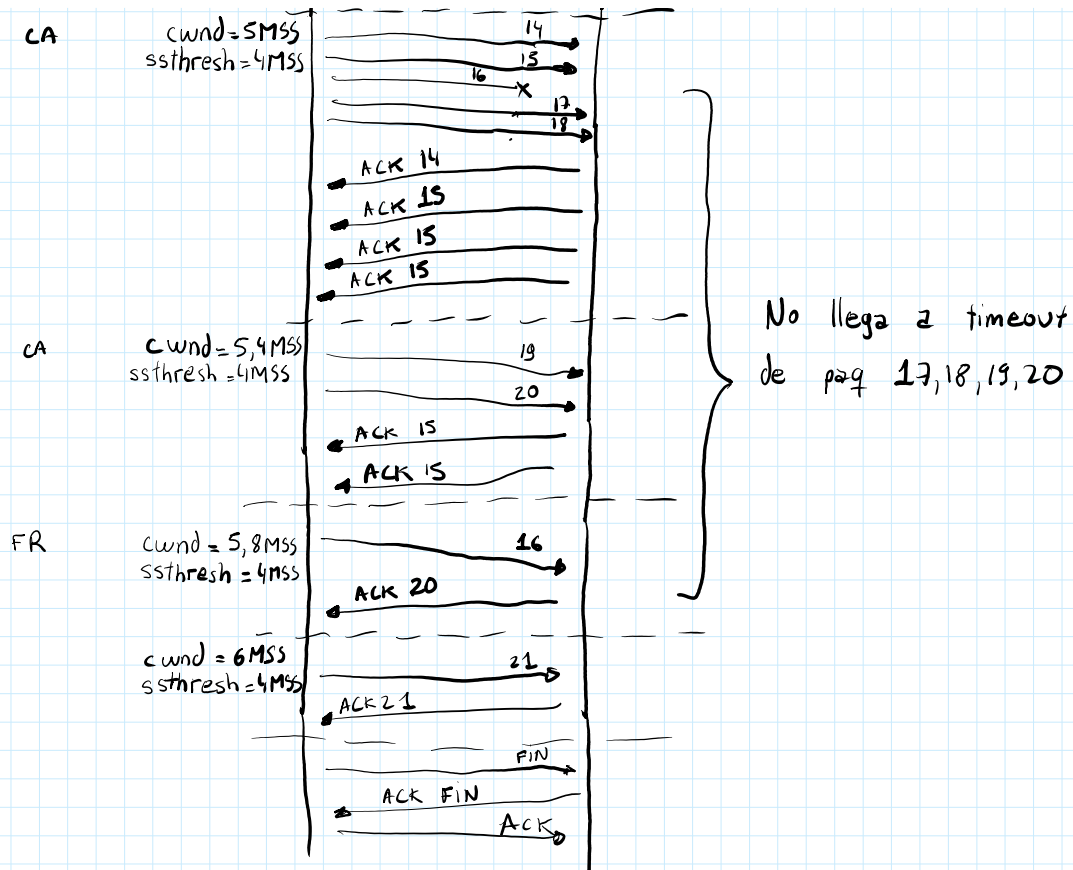 CA
cwnd=5MSS
ssthresh=4MSS
14
15
16
x
17
18
ACK 14
ACK 15
ACK 15
ACK 15
CA
cwnd=5,4MSS
ssthresh=4MSS
19
20
ACK 15
ACK 15
No llega a timeout
de paq 17,18,19,20
FR
cwnd = 5,8MSS
ssthresh = 4MSS
16
ACK 20
cwnd = 6MSS
ssthresh=4MSS
21
ACK21
FIN
ACK FIN
ACK